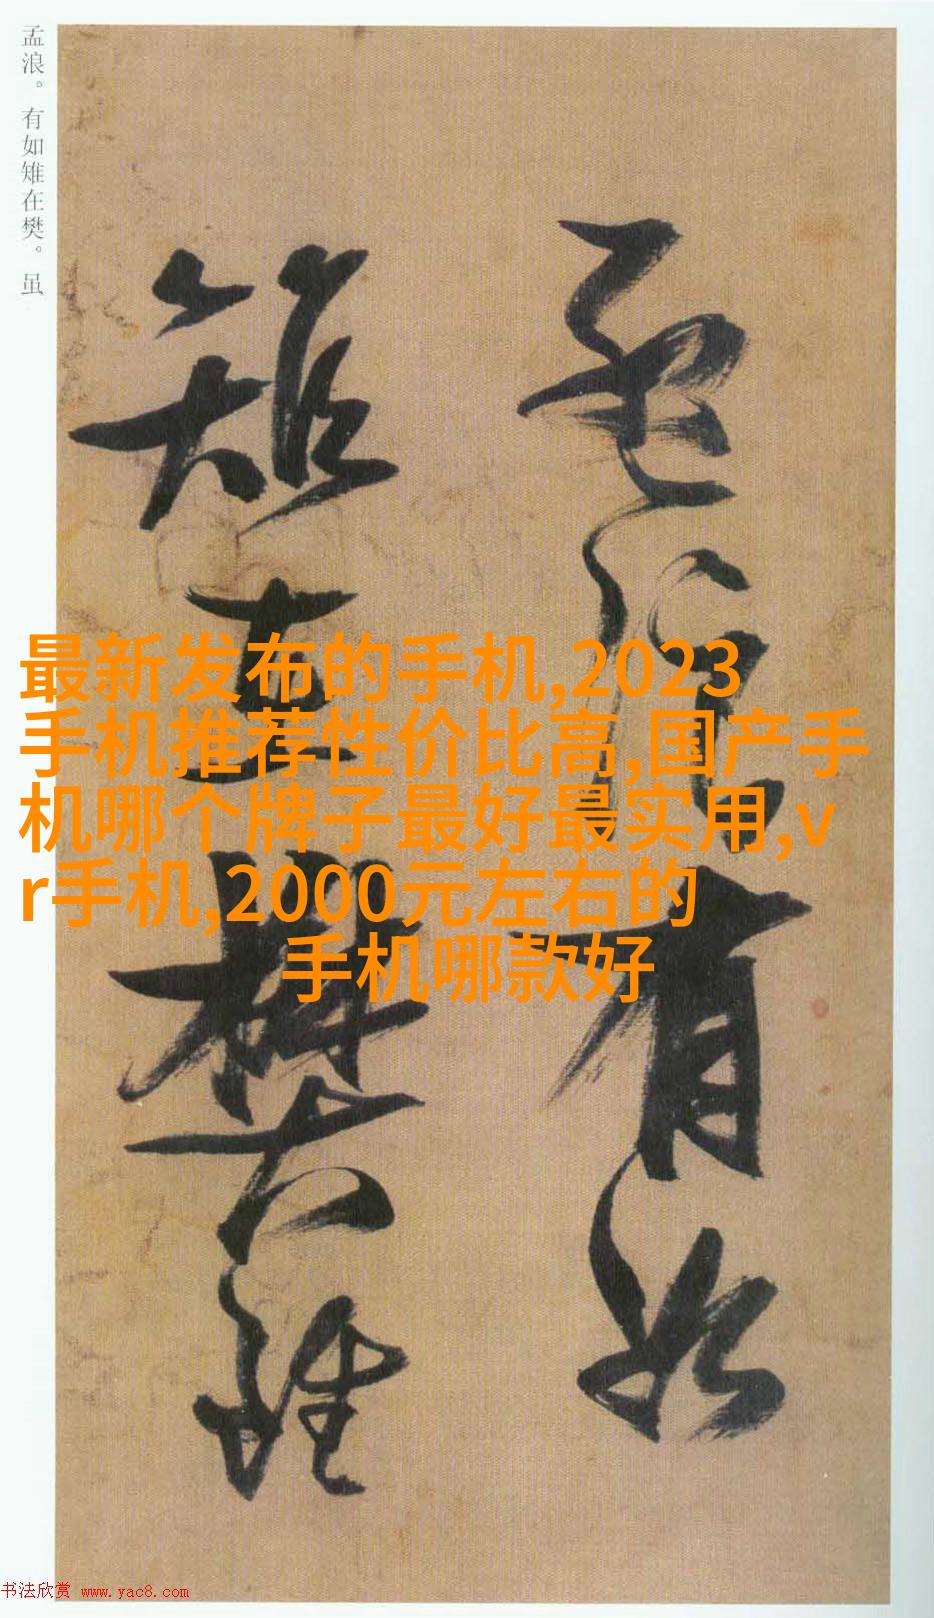 孟浪。有如雉在樊。虽
孟浪有如
雉在樊雖
最新发布的手机,2023
手机推荐性价比高,国产手
机哪个牌子最好最实用,v
r手机,2000元左右的
手机哪款好
书法欣赏 www.yac8.com